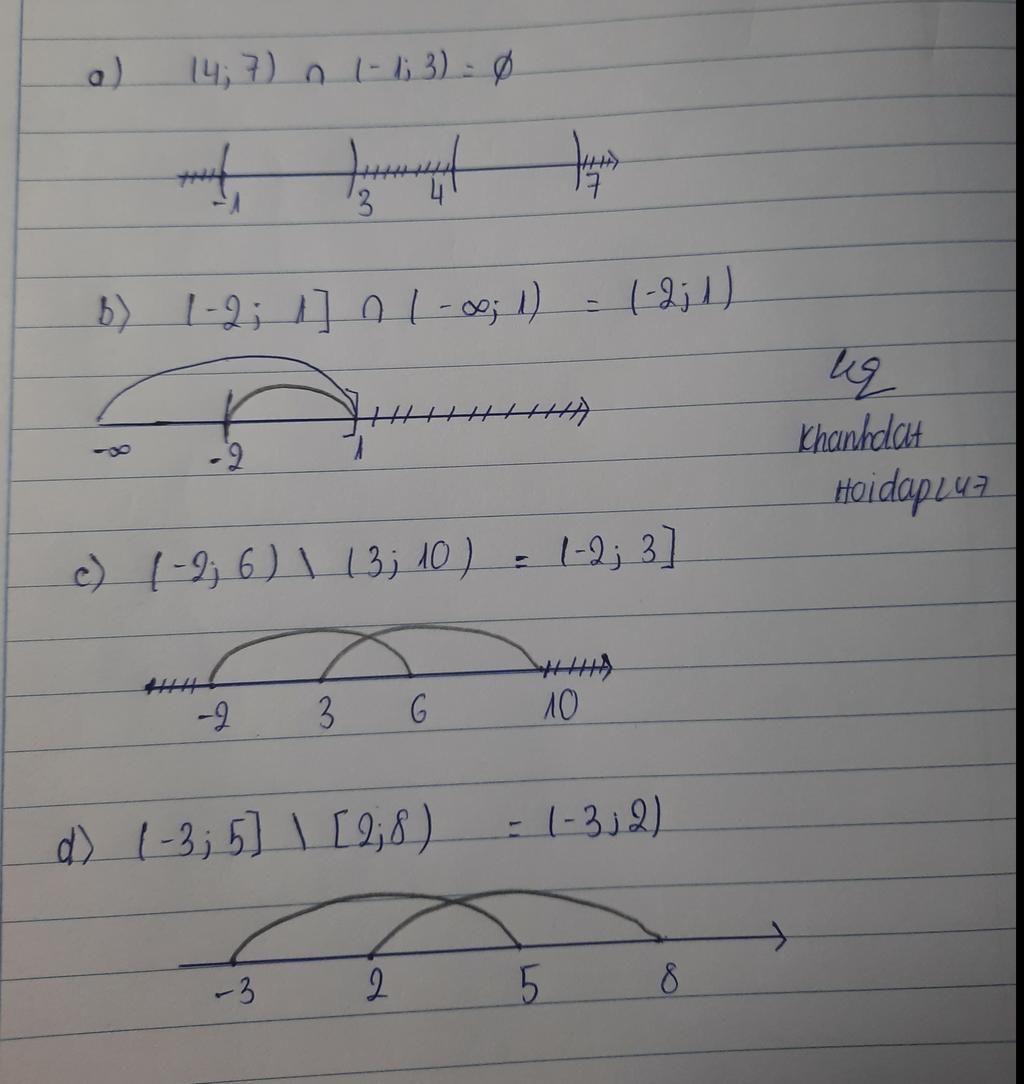 a) (4; 7) ∩ (-1; 3) = ∅
-1 3 4 7
b) (-2; 1] ∩ (-∞; 1) = (-2; 1)
-∞ -2 1
Khanhdat
Hoidap247
c) (-2; 6) \ (3; 10) = (-2; 3]
-2 3 6 10
d) (-3; 5] \ [2; 8) = (-3; 2)
-3 2 5 8